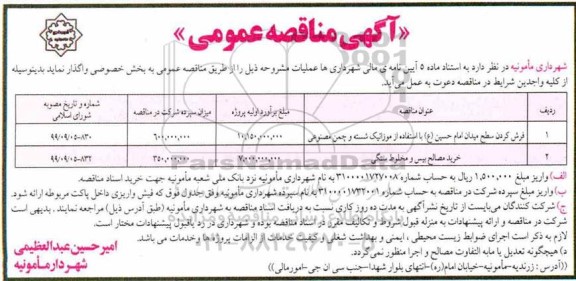 «آگهی مناقصه عمومی»
شهرداری مأمونیه در نظر دارد به استناد ماده ۵ آیین نامه ی مالی شهرداری ها عملیات مشروحه ذیل را از طریق مناقصه عمومی به بخش خصوصی واگذار نماید بدینوسیله
از کلیه واجدین شرایط در مناقصه دعوت به عمل می‌آید.
ردیف عنوان مناقصه مبلغ برآورد اولیه پروژه میزان سپرده شرکت در مناقصه شماره و تاریخ مصوبه شورای اسلامی
۱ فرش کردن سطح میدان امام حسین (ع) با استفاده از موزائیک شسته و چمن مصنوعی ۶۰۰,۰۰۰,۰۰۰ ۸۳۰-۹۹/۰۹/۰۵
۲ خرید مصالح بیس و مخلوط سنگی ۷,۰۰۰,۰۰۰,۰۰۰ ۳۵۰,۰۰۰,۰۰۰ ۸۳۲-۹۹/۰۹/۰۵
الف) واریز مبلغ ۱,۵۰۰,۰۰۰ ریال به حساب شماره ۳۱۰۰۰۰۱۷۲۷۰۰۸ به نام شهرداری مأمونیه نزد بانک ملی شعبه مأمونیه جهت خرید اسناد مناقصه.
ب) واریز مبلغ سپرده شرکت در مناقصه به حساب شماره به نام سپرده شهرداری مأمونیه وفق جدول فوق که فیش واریزی داخل پاکت مربوطه ارائه شود.
ج) شرکت کنندگان می‌بایست از تاریخ نشر آگهی به مدت ده روز کاری نسبت به دریافت اسناد مناقصه به شهرداری مأمونیه (طبق آدرس ذیل) مراجعه نمایند . بدیهی است
شرکت در مناقصه و ارائه پیشنهادات به منزله قبول شروط و تکالیف مقرر در اسناد مناقصه بوده و شهرداری در رد یا قبول پیشنهادات مختار است.
لازم به ذکر است اجرای ضوابط زیست محیطی ، ایمنی و بهداشت شغلی و کیفیت خدمات از الزامات پروژه‌ها و خدمات می باشد.
د) هیچگونه تعدیل یا مابه التفاوت مصالح و اجرا منظور نمی‌گردد.
((آدرس : زرندیه-مأمونیه-خیابان امام(ره)-انتهای بلوار شهدا-جنب سی ان جی-امورمالی))
امیرحسین عبدالعظیمی
شهردار مأمونیه
ParsNamadData